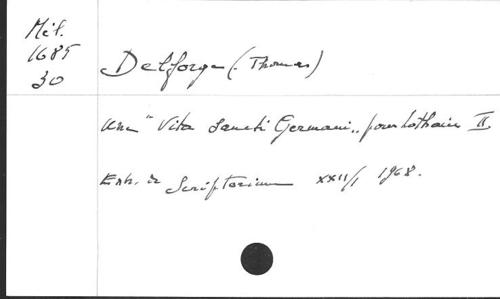 Mél.
1685
30
Delforge (Thomas)
Une "Vita Sancti Germani" pour Lothaire II
Extr. de Scriptorium XXII/1 1968.